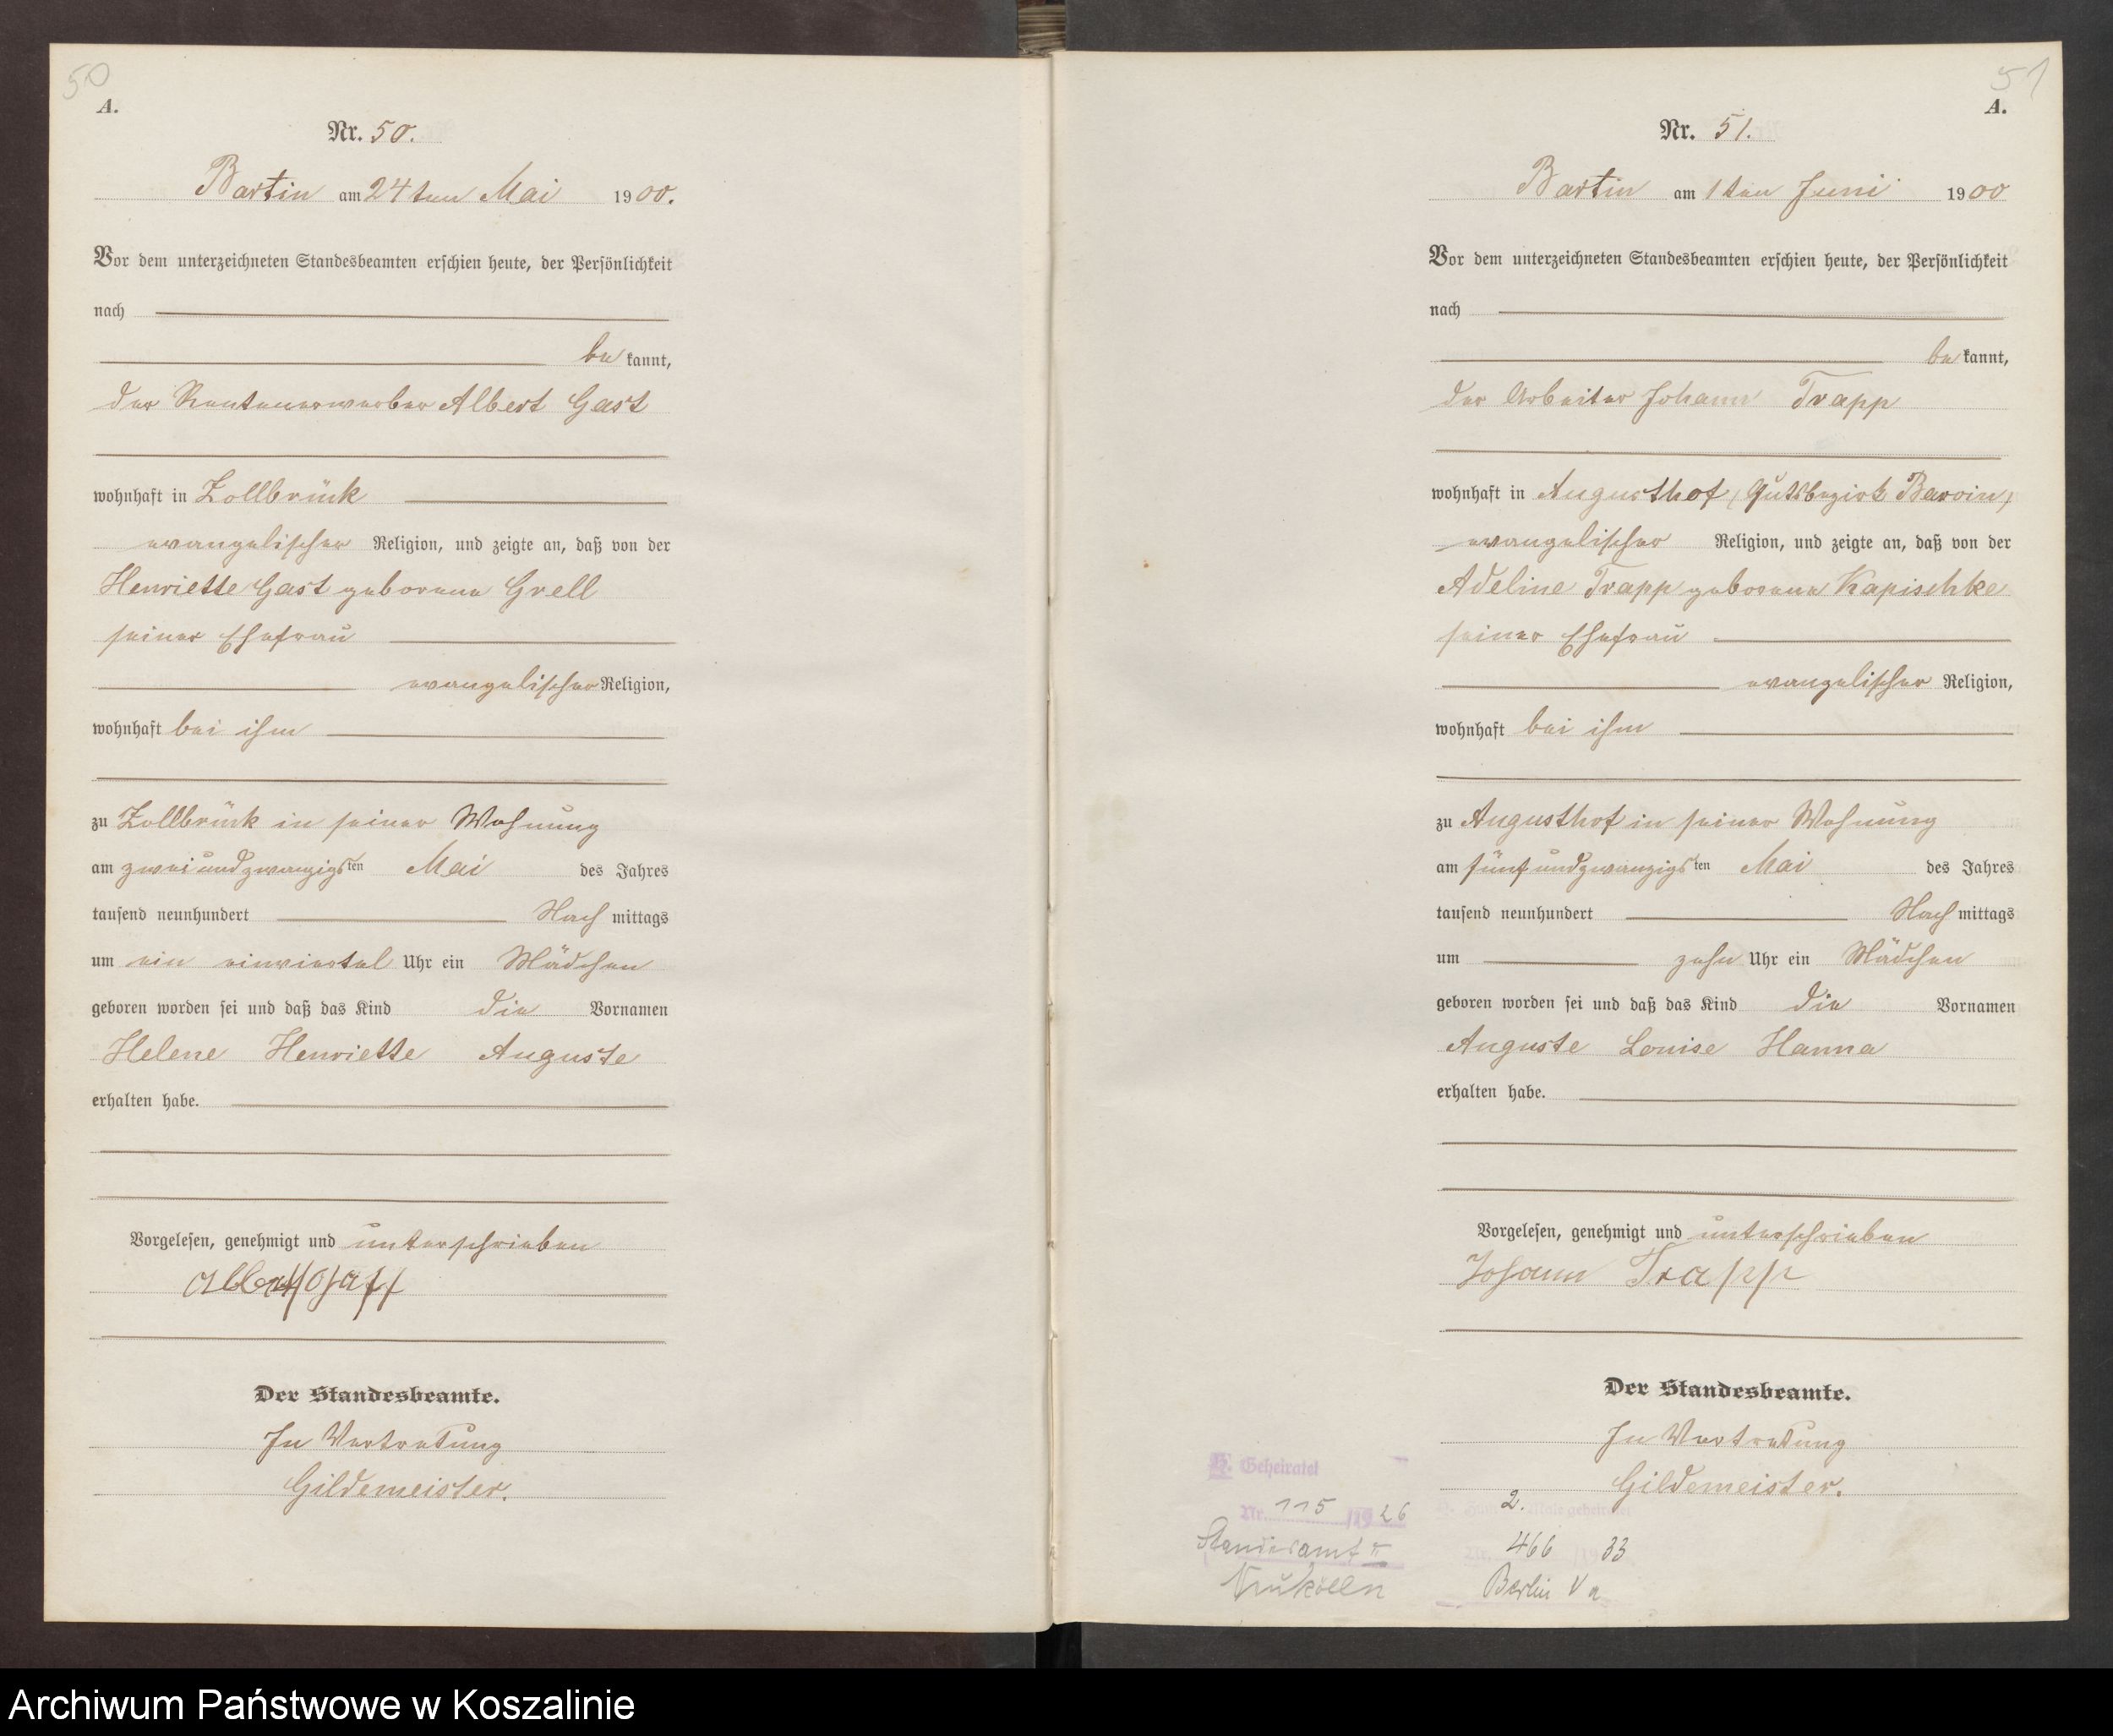 50
A.
Nr. 50.
Bartin am 24ten Mai 1900.
Vor dem unterzeichneten Standesbeamten erschien heute, der Persönlichkeit
nach
be kannt,
der Rentenerwerber Albert Gast
wohnhaft in Zollbrück
evangelischer Religion, und zeigte an, daß von der
Henriette Gast geborene Grell
seiner Ehefrau
evangelischer Religion,
wohnhaft bei ihm
zu Zollbrück in seiner Wohnung
am zweiundzwanzigsten Mai des Jahres
tausend neunhundert Nach mittags
um ein einviertel Uhr ein Mädchen
geboren worden sei und daß das Kind die Vornamen
Helene Henriette Auguste
erhalten habe.
Vorgelesen, genehmigt und unterschrieben
Albert Gast
Der Standesbeamte.
In Vertretung
Gildemeister.
51
A.
Nr. 51.
Bartin am 1ten Juni 1900
Vor dem unterzeichneten Standesbeamten erschien heute, der Persönlichkeit
nach
be kannt,
der Arbeiter Johann Trapp
wohnhaft in Augusthof, Gutsbezirk Barvin,
evangelischer Religion, und zeigte an, daß von der
Adeline Trapp geborene Kapischke
seiner Ehefrau
evangelischer Religion,
wohnhaft bei ihm
zu Augusthof in seiner Wohnung
am fünfundzwanzigsten Mai des Jahres
tausend neunhundert Nach mittags
um zehn Uhr ein Mädchen
geboren worden sei und daß das Kind die Vornamen
Auguste Louise Hanna
erhalten habe.
Vorgelesen, genehmigt und unterschrieben
Johann Trapp
Der Standesbeamte.
In Vertretung
Gildemeister.
H. Geheiratet
Nr. 115 /1926
Standesamt II
Neukölln
2. Male geheiratet
Nr. 466 /1933
Berlin V a
Archiwum Państwowe w Koszalinie